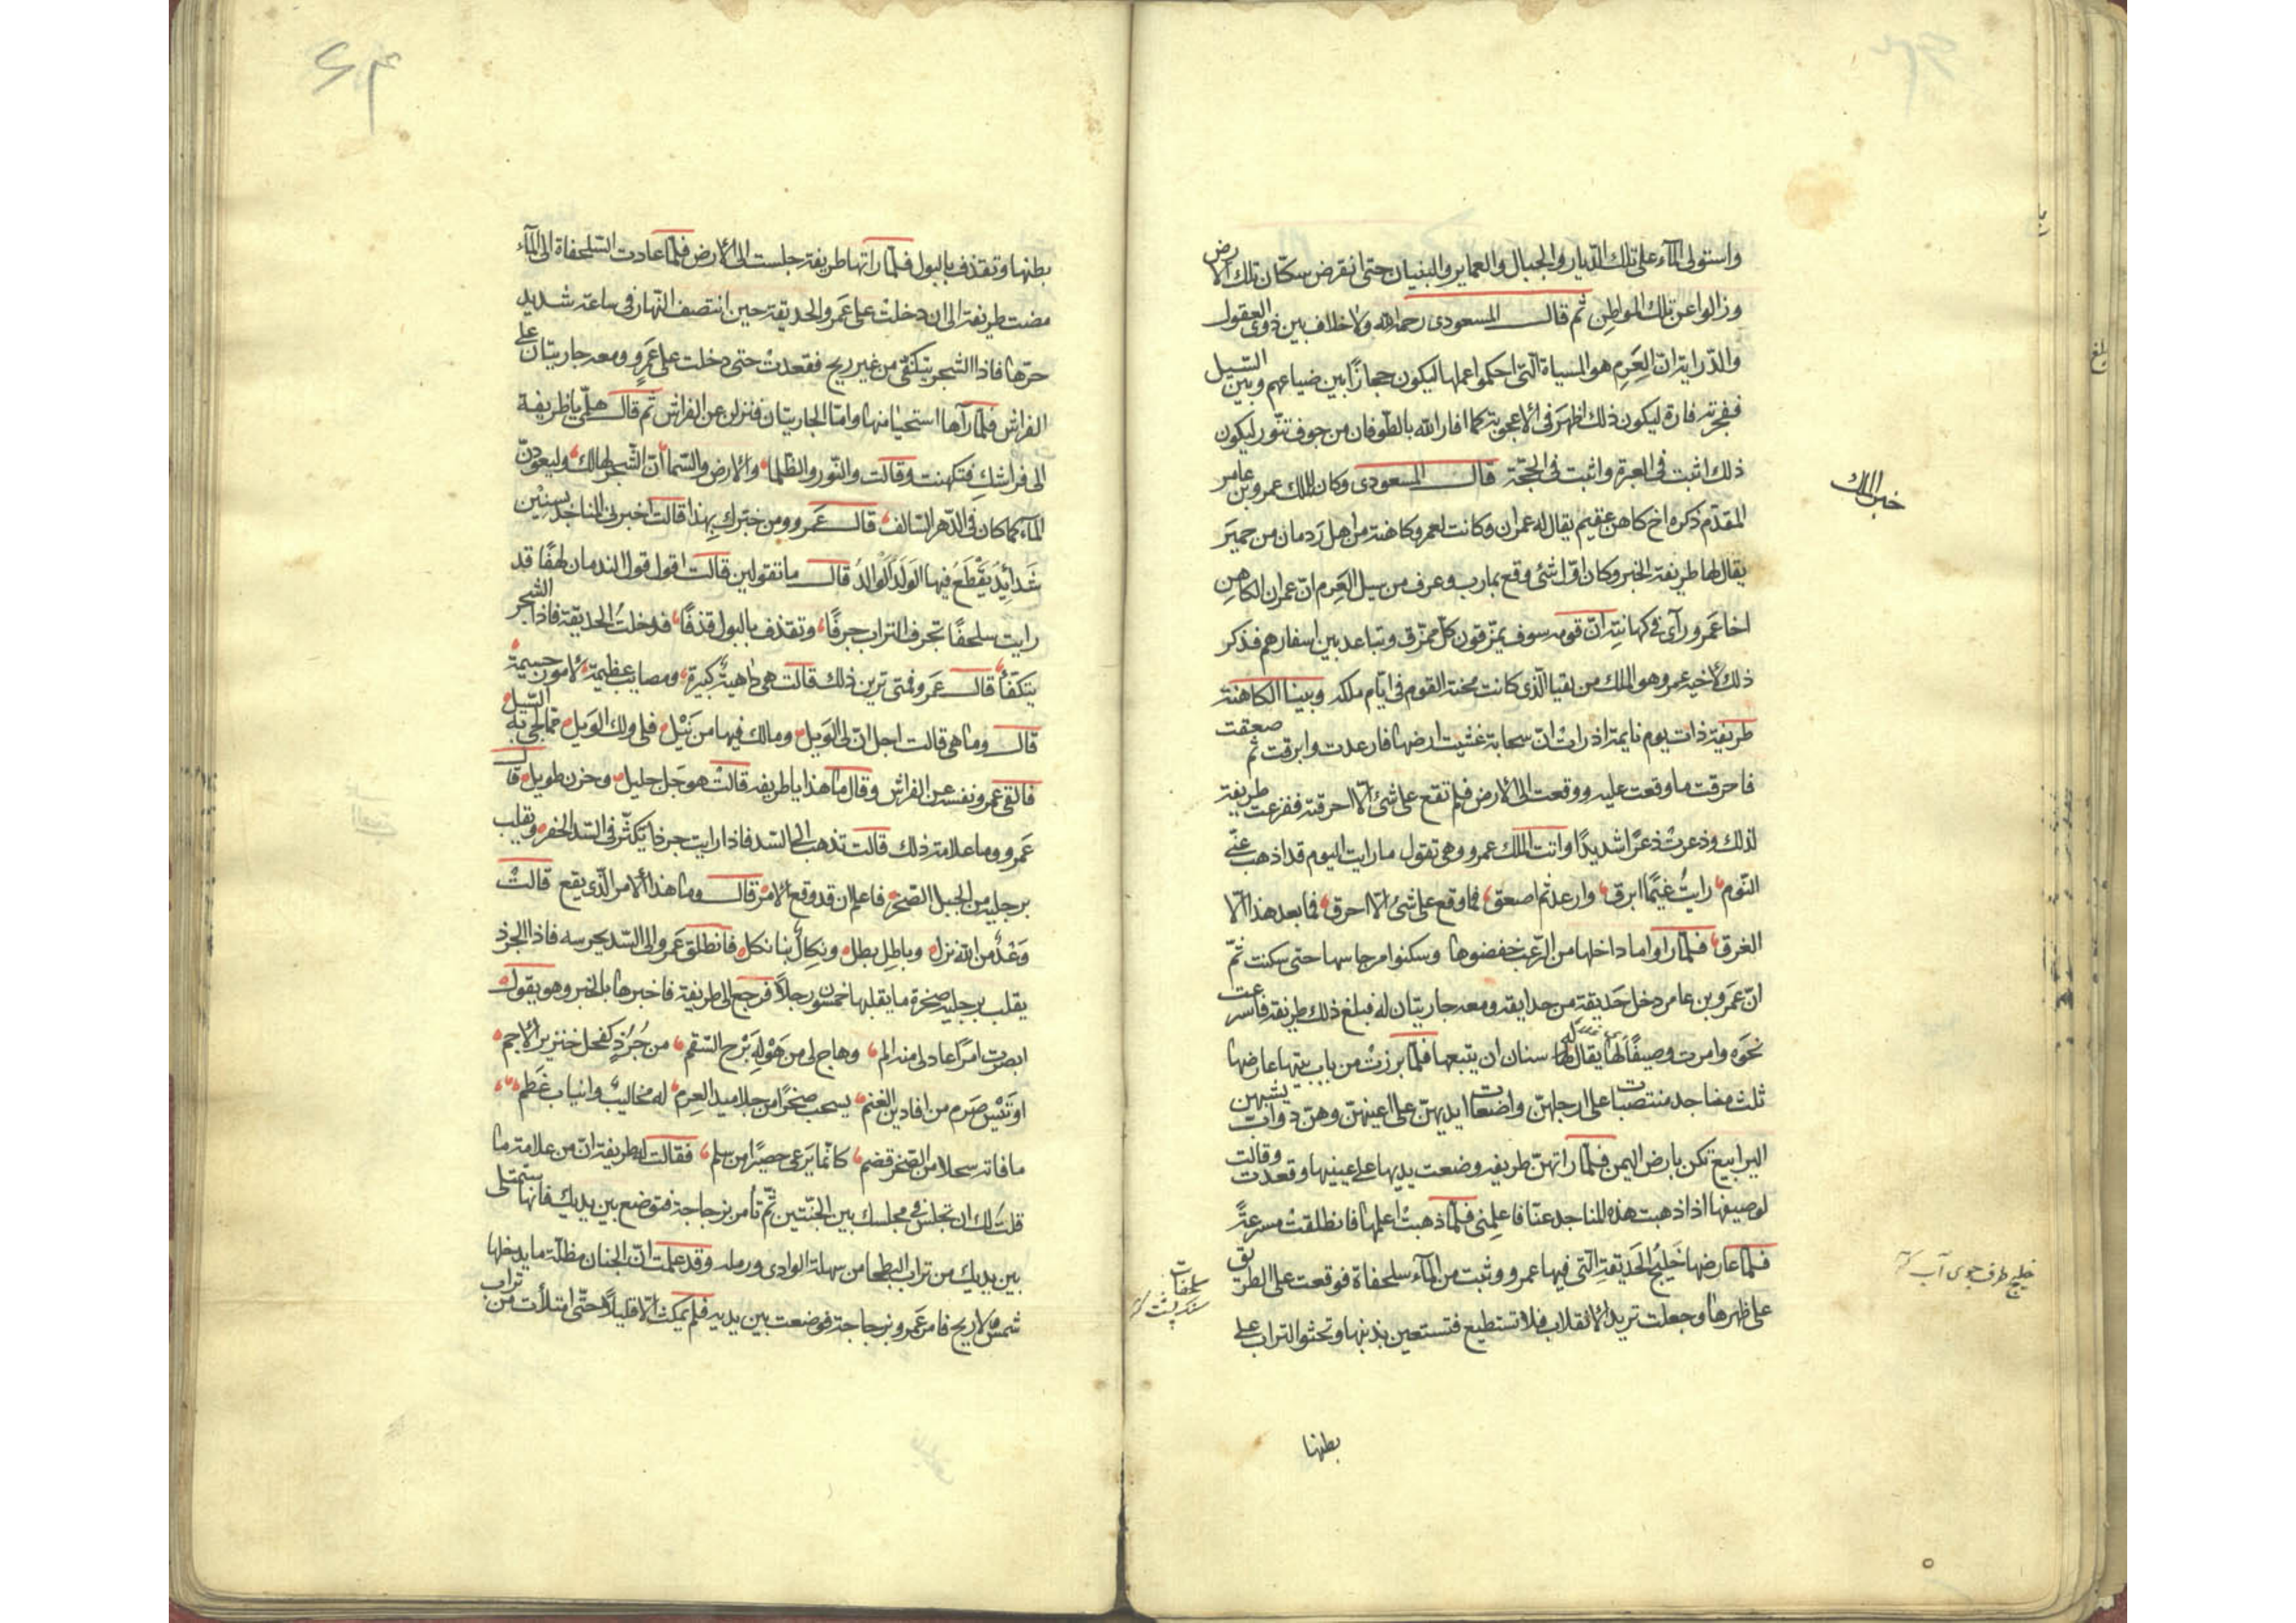 واستولى المآء على تلك الدّيار والجبال والعماير والبنيان حتى انقرض سكّان تلك الارض
وزالوا عن تلك المواطن ثم قال المسعودى رحمه الله ولا خلاف بين ذوى العقول
والدّراية ان العَرِم هو المسياة الّتى احكموا عملها ليكون حجازًا بين ضياعهم وبين السّيل
ففجرته فارة ليكون ذلك اظهَر فى الاعجوبة كما افار الله بالطّوفان من جوف تنّور ليكون
ذلك اثبت فى العبرة واثبت فى الحجّة قال المسعودى وكان للملك عمرو بن عامر
المقدّم ذكره اخ كاهن عقيم يقال له عمران وكانت لعمرو كاهنة من اهل رَدمان من حميَر
يقال لها طريفة الخبر وكان اوّل شئ وقع بمارب وعرف من سيل العَرِم انّ عمران الكاهِن
اخا عَمرو رآى فى كهانته انّ قومه سوف يمزّقون كلّ ممزّق ويتباعد بين اسفارهم فذكر
ذلك لاخيه عمرو وهو الملك من يقيا الّذى كانت محنة القوم فى ايّام ملكه وبينا الكاهنة
طريفة ذات يوم نايمة اذ رات انّ سحابة غشيت ارضها فارعدت وابرقت ثم صعقت
فاحرقت ما وقعت عليه ووقعت الى الارض فلم تقع على شئ الّا احرقته ففزعت طريفة
لذلك وذعرتْ ذعرًا شديدًا واتت الملك عمرو وهى تقول ما رايت اليوم قد اذهب عنّى
النّوم رايتُ غيمًا ابرق وارعد ثم اصعق فما وقع على شئ الّا احرق فما بعد هذا الّا
الغرق فلمّا راوا ما داخلها من الرّعب خفضوها وسكنوا من جاسها حتى سكنت ثمّ
انّ عَمرو بن عامر دخل حَديقة من حدايقه ومعه جاريتان له فبلغ ذلك طريفة فاسرعت
نحوَه وامرت وصيفًا لها يقال له سنان ان يتبعها فلمّا برزتْ من باب بيتها عارضها
ثلث مناجد منتصبات على ارجلهنّ واضعات ايديهنّ على اعينهنّ وهنّ دوابّ يشبهن
اليرابيع تكن بارض اليمن فلمّا راتهنّ طريفه وضعت يديها على عينيها وقعدت وقالت
لوصيفها اذا ذهبت هذه المناجد عنّا فاعلِمنى فلمّا ذهبتْ اعلمها فانطلقتْ مسرعةً
فلمّا عارضها خَليجُ الحَديقةِ الّتى فيها عمرو وثبت من المآء سلحفاة فوقعت على الطريق
على ظهرها وجعلت تريد الانقلاب فلا تستطيع فتستعين بذنبها وتحثوا التراب على
بطنها
بلغ
خبر الملك
خليج طرف جوى آب
سلحفات
سنك پشت
بطنها وتقذف بالبول فلمّا راتها طريفة جلست الى الارض فلمّا عادت السّلحفاة الى المآء
مضت طريفة الى ان دخلتْ على عَمرو الحديقة حين انتصف النّهار فى ساعة شديد
حرّها فاذا الشّجر يتكفّى من غير ريح فقعدتْ حتى دخلت على عَمرٍو ومعه جاريتان على
الفراش فلمّا رآها استحيا منها وامّا الجاريتان فنزلن عن الفراش ثم قال هلمّى يا طريفة
الى فراشكِ فتكهنت وقالت والنّور والظّلما والارض والسّما انّ الشّجر لهالك وليعودنّ
المآء كما كان فى الدّهر السّالف قال عَمرو ومن خبّرك بهذا قالت اخبرنى المناجد بسِنيْن
شَدائِدٌ يَقْطَعُ فيها الوَلَدُ الوالِدُ قال ما تقولين قالت اقول قول الندمان لهفًا قد
رايت سلحفًا تجرف التراب جرفًا وتقذف بالبول قذفًا فدخلتُ الحديقة فاذا الشّجر
يتكفّأ قال عَمرو فمتى ترين ذلك قالت هى داهيةٌ كبيرة ومصايب عظيمة لامور جسيمة
قال وما هى قالت اجل انّ لى الوَيل وما لك فيها من نَيْل فلى ولك الوَيل مما يجئ به السّيل
فالقى عمرو نفسه عن الفراش وقال ما هذا يا طريفه قالتْ هو جَل جليل وحزن طويل قال
عَمرو وما علامة ذلك قالت تذهب الى السّد فاذا رايت جرذا يكثّر فى السّد الحفر ويقلب
برجليه من الجبل الصّخر فاعلم ان قد وقع الامر قال وما هذا الامر الّذى يقع قالتْ
وَعْدٌ من الله نزل وباطل بطل ونكالٌ بنا نكل فانطلق عَمرو الى السّد يحرسه فاذا الجرذ
يقلب برجليه صخرة ما يقلبها خمسون رجلًا فرجع الى طريفة فاخبرها بالخبر وهو يقول
ابصرت امرًا عادلى منه الم وهاج لى من هَوْلِهِ بَرْح السّقم من جُرَذٍ كفحل خنزير الاجم
او تَيْسِ صَرم من افاديق الغنم يسحب صخرًا من جلاميد العرم له مخاليبٌ وانياب غَطم
ما فاته سحلا من الصّخر قضم كانّما يَرعى حصيرًا من سلم فقالت له طريفة انّ من علامة ما
قلتُ لك ان تجلس فى مجلسك بين الجنّتين ثمّ تأمر بزجاجة فتوضع بين يديك فانها ستمتلى
بين يديك من تراب البطحا من سهلة الوادى ورمله وقد علمت انّ الجنان مظلّة ما يدخلها
شمس ولا ريح فامر عَمرو بزجاجة فوضعت بين يديه فلم يمكث الّا قليلًا حتّى امتلأت من تراب